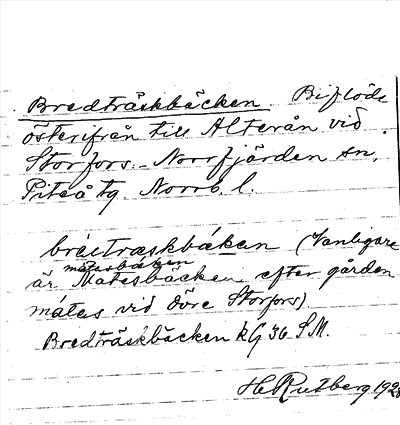 Bredträskbäcken Biflöde
österifrån till Alterån vid
Storfors. - Norrfjärden sn,
Piteå tg Norrb. l.
bréetræskbäken (Vanligare
mátesbäcken
är Matesbäcken efter gården
mátes vid övre Storfors)
Bredträskbäcken kG 36 S.M.
H. Rutberg 1928